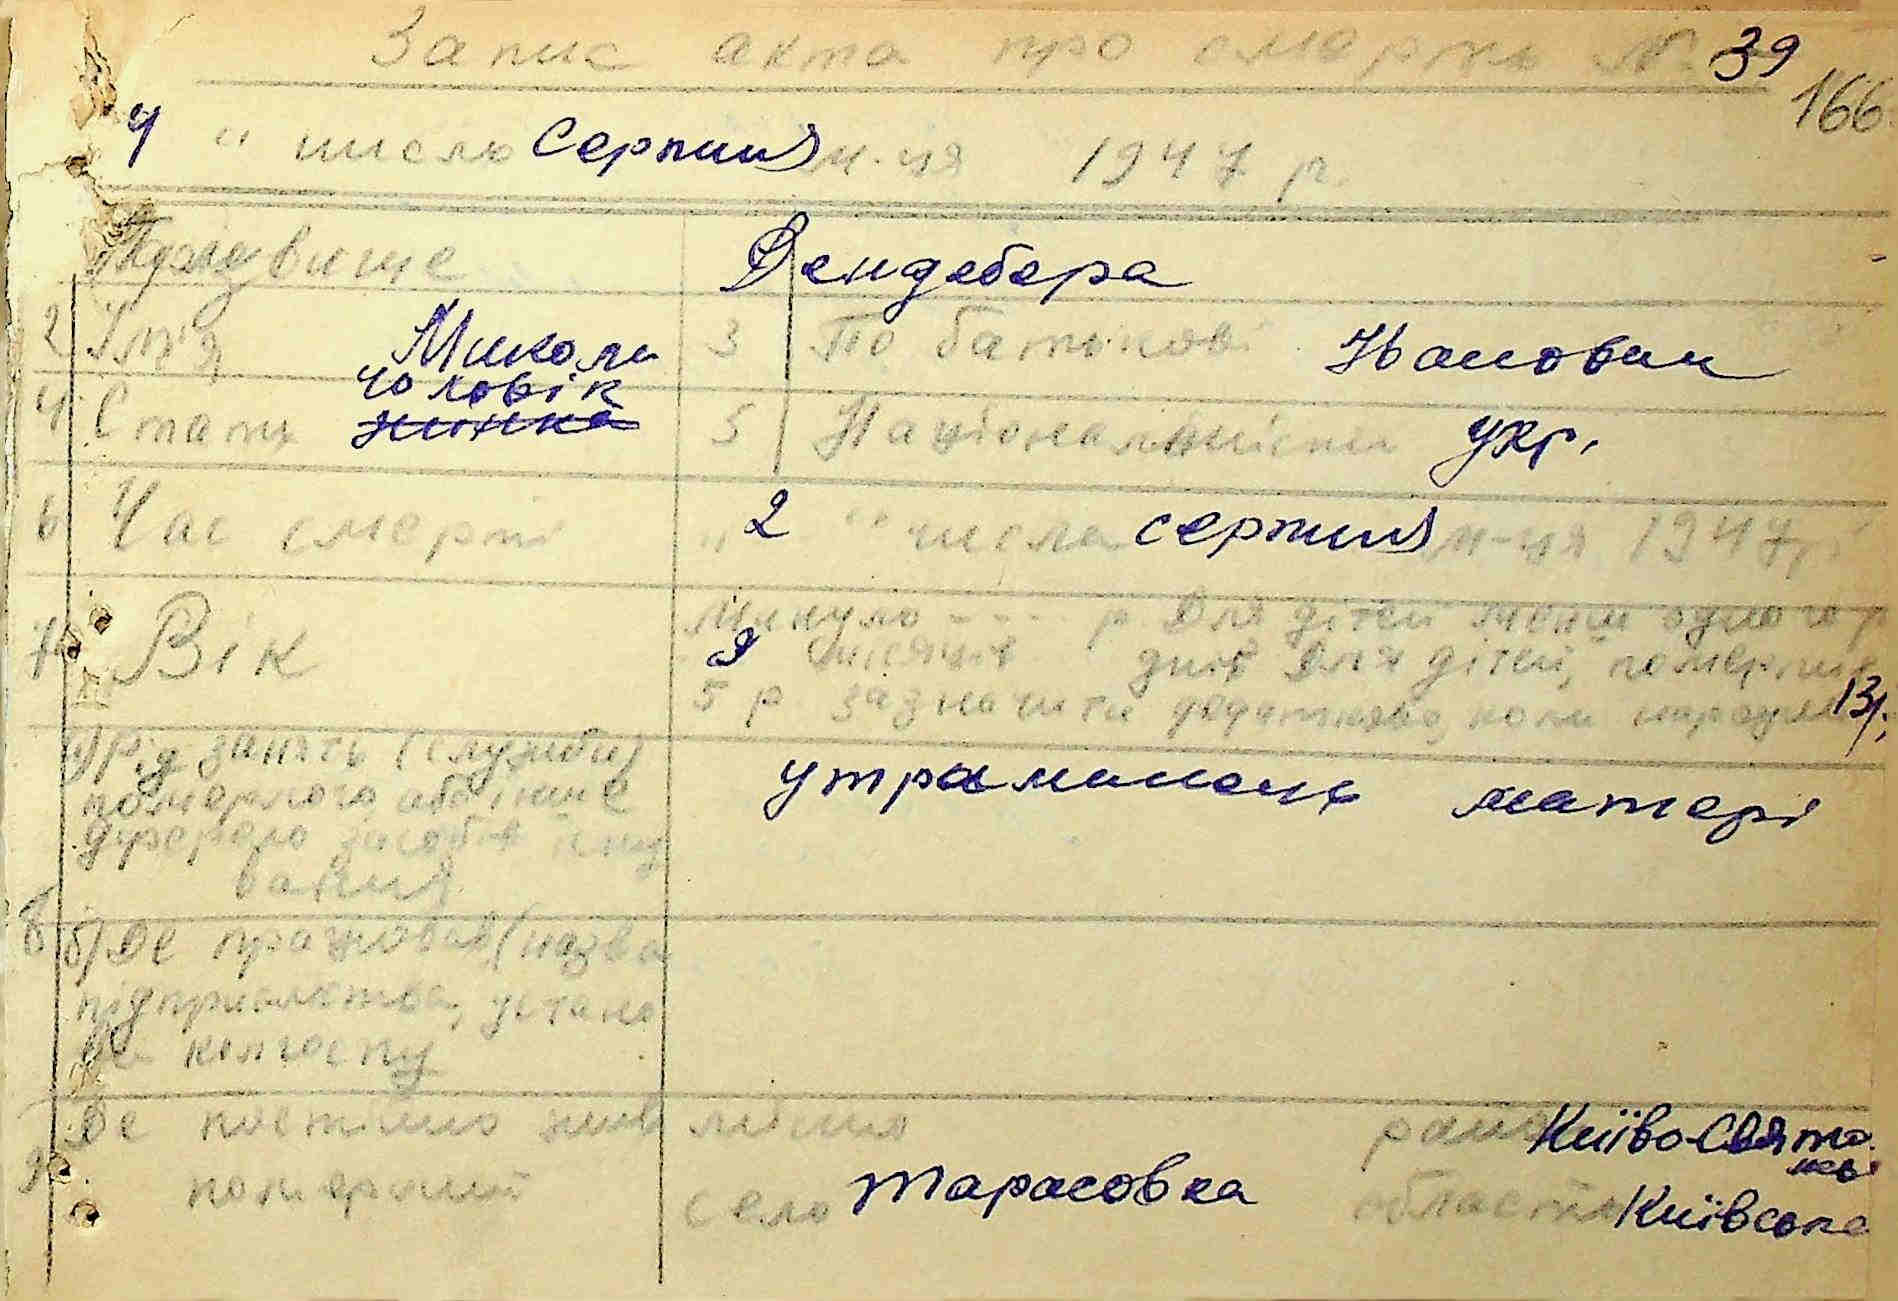 Запис акта про смерть № 39
166
4 " число серпня м-ця 1947 р.
Прізвище Дендебера
2 Ім'я Микола 3 По батькові Іванович
чоловік
4 Стать жінка 5 Національність укр.
6 Час смерті " 2 " числа серпня м-ця 1947 р.
7 Вік Минуло р. Для дітей менш одного р
9 місяців днів Для дітей, померших
5 р. зазначити додатково, коли народився 13р.
а) Рід занять (служби) утриманець матері
померлого або інше
джерело засобів існу
вання
8 б) Де працював (назва
підприємства, устано
ви колгоспу
9 Де постійно жив місто район Київо-Свято
шсь
померлий село Тарасовка область Київська